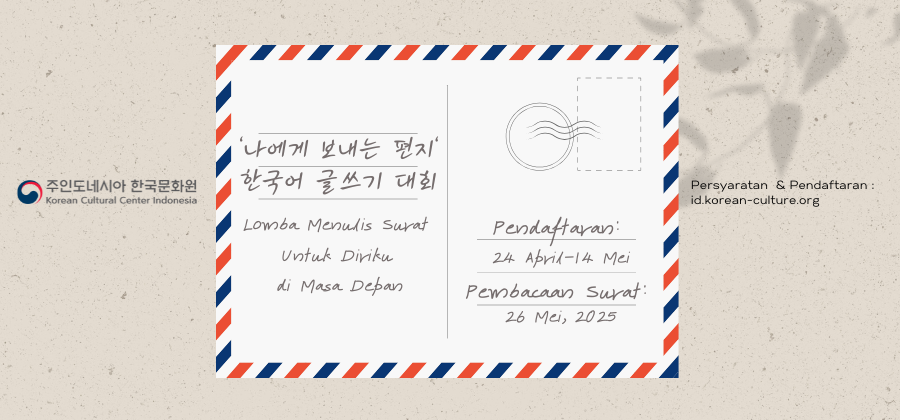 주인도네시아 한국문화원
Korean Cultural Center Indonesia
'나에게 보내는 편지'
한국어 글쓰기 대회
Lomba Menulis Surat
Untuk Diriku
di Masa Depan
Pendaftaran:
24 April-14 Mei
Pembacaan Surat:
26 Mei, 2025
Persyaratan & Pendaftaran :
id.korean-culture.org